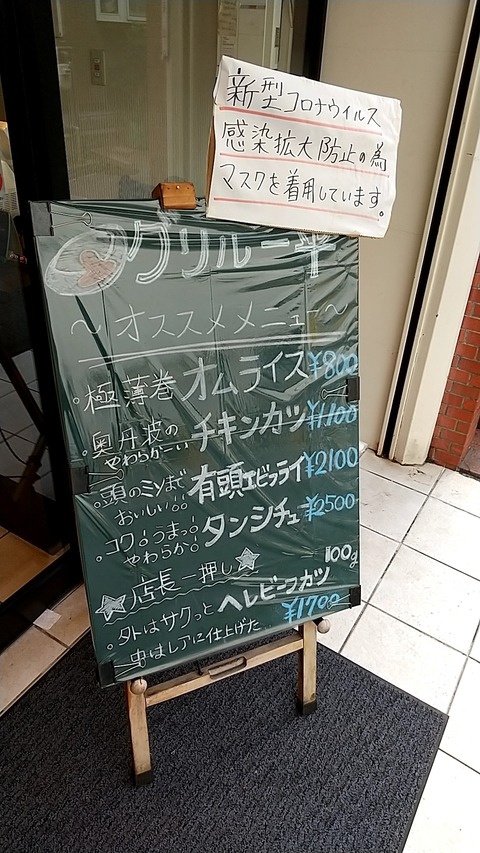 新型コロナウィルス
感染拡大防止の為
マスクを着用しています。
グリル一平
～オススメメニュー～
。極薄巻オムライス ¥800
。奥丹波の
やわらかーい チキンカツ ¥1,100
。頭のミソまで
おいしい!! 有頭エビフライ ¥2100
。コク。うま。
やわらか。 タンシチュー ¥2500
☆店長一押し☆
100g
。外はサクっと ヘレビーフカツ
中はレアに仕上げた… ¥1700